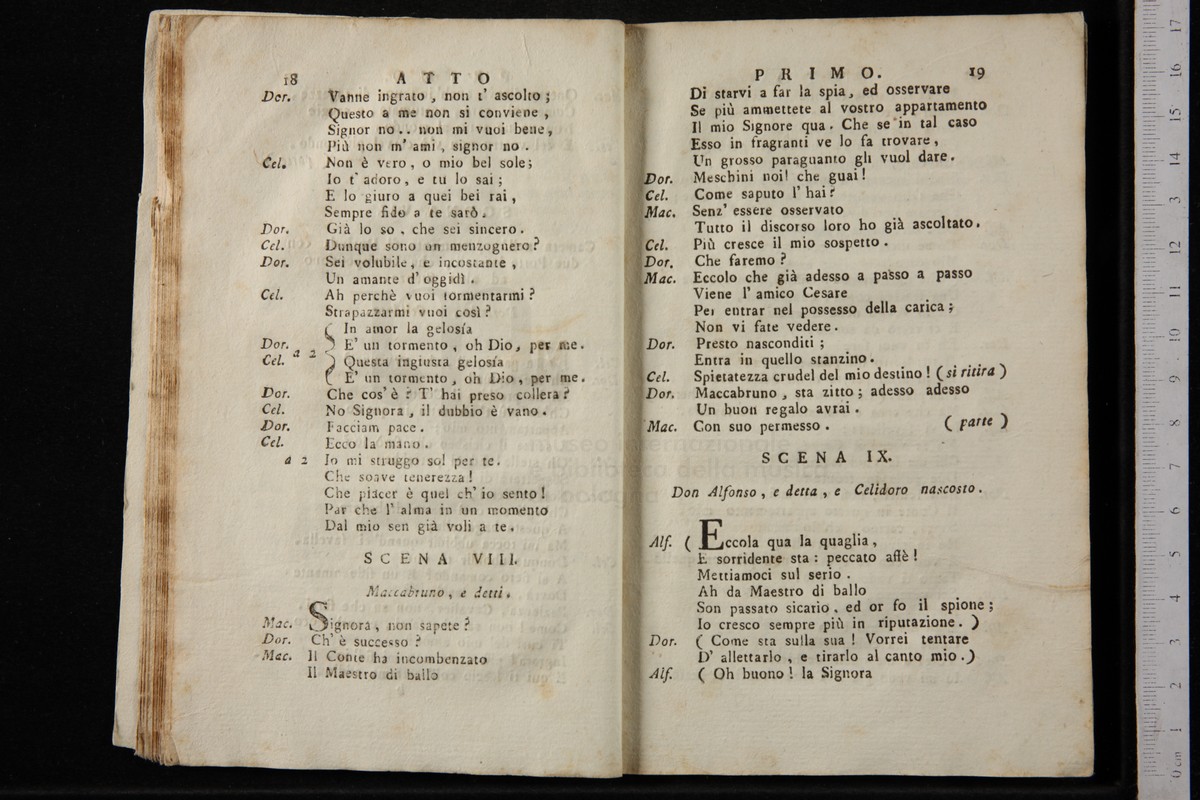 18 ATTO
Dor. Vanne ingrato, non t' ascolto;
Questo a me non si conviene,
Signor no.. non mi vuoi bene,
Più non m' ami, signor no.
Cel. Non è vero, o mio bel sole;
Io t' adoro, e tu lo sai;
E lo giuro a quei bei rai,
Sempre fido a te sarò.
Dor. Già lo so, che sei sincero.
Cel. Dunque sono un menzognero?
Dor. Sei volubile, e incostante,
Un amante d' oggidì.
Cel. Ah perchè vuoi tormentarmi?
Strapazzarmi vuoi così?
In amor la gelosía
Dor. E' un tormento, oh Dio, per me.
Cel. a 2 Questa ingiusta gelosía
E' un tormento, oh Dio, per me.
Dor. Che cos' è? T' hai preso collera?
Cel. No Signora, il dubbio è vano.
Dor. Facciam pace.
Cel. Ecco la mano.
a 2 Io mi struggo sol per te.
Che soave tenerezza!
Che piacer è quel ch' io sento!
Par che l' alma in un momento
Dal mio sen già voli a te.
SCENA VIII.
Maccabruno, e detti.
Mac. Signora, non sapete?
Dor. Ch' è successo?
Mac. Il Conte ha incombenzato
Il Maestro di ballo
PRIMO. 19
Di starvi a far la spia, ed osservare
Se più ammettete al vostro appartamento
Il mio Signore qua. Che se in tal caso
Esso in fragranti ve lo fa trovare,
Un grosso paraguanto gli vuol dare.
Dor. Meschini noi! che guai!
Cel. Come saputo l' hai?
Mac. Senz' essere osservato
Tutto il discorso loro ho già ascoltato.
Cel. Più cresce il mio sospetto.
Dor. Che faremo?
Mac. Eccolo che già adesso a passo a passo
Viene l' amico Cesare
Per entrar nel possesso della carica;
Non vi fate vedere.
Dor. Presto nasconditi;
Entra in quello stanzino.
Cel. Spietatezza crudel del mio destino! (si ritira)
Dor. Maccabruno, sta zitto; adesso adesso
Un buon regalo avrai.
Mac. Con suo permesso. (parte)
SCENA IX.
Don Alfonso, e detta, e Celidoro nascosto.
Alf. (Eccola qua la quaglia,
E sorridente sta: peccato affè!
Mettiamoci sul serio.
Ah da Maestro di ballo
Son passato sicario, ed or fo il spione;
Io cresco sempre più in riputazione.)
Dor. (Come sta sulla sua! Vorrei tentare
D' allettarlo, e tirarlo al canto mio.)
Alf. (Oh buono! la Signora
museo internazionale
e biblioteca della musica
di bologna
0 cm 1 2 3 4 5 6 7 8 9 10 11 12 13 14 15 16 17